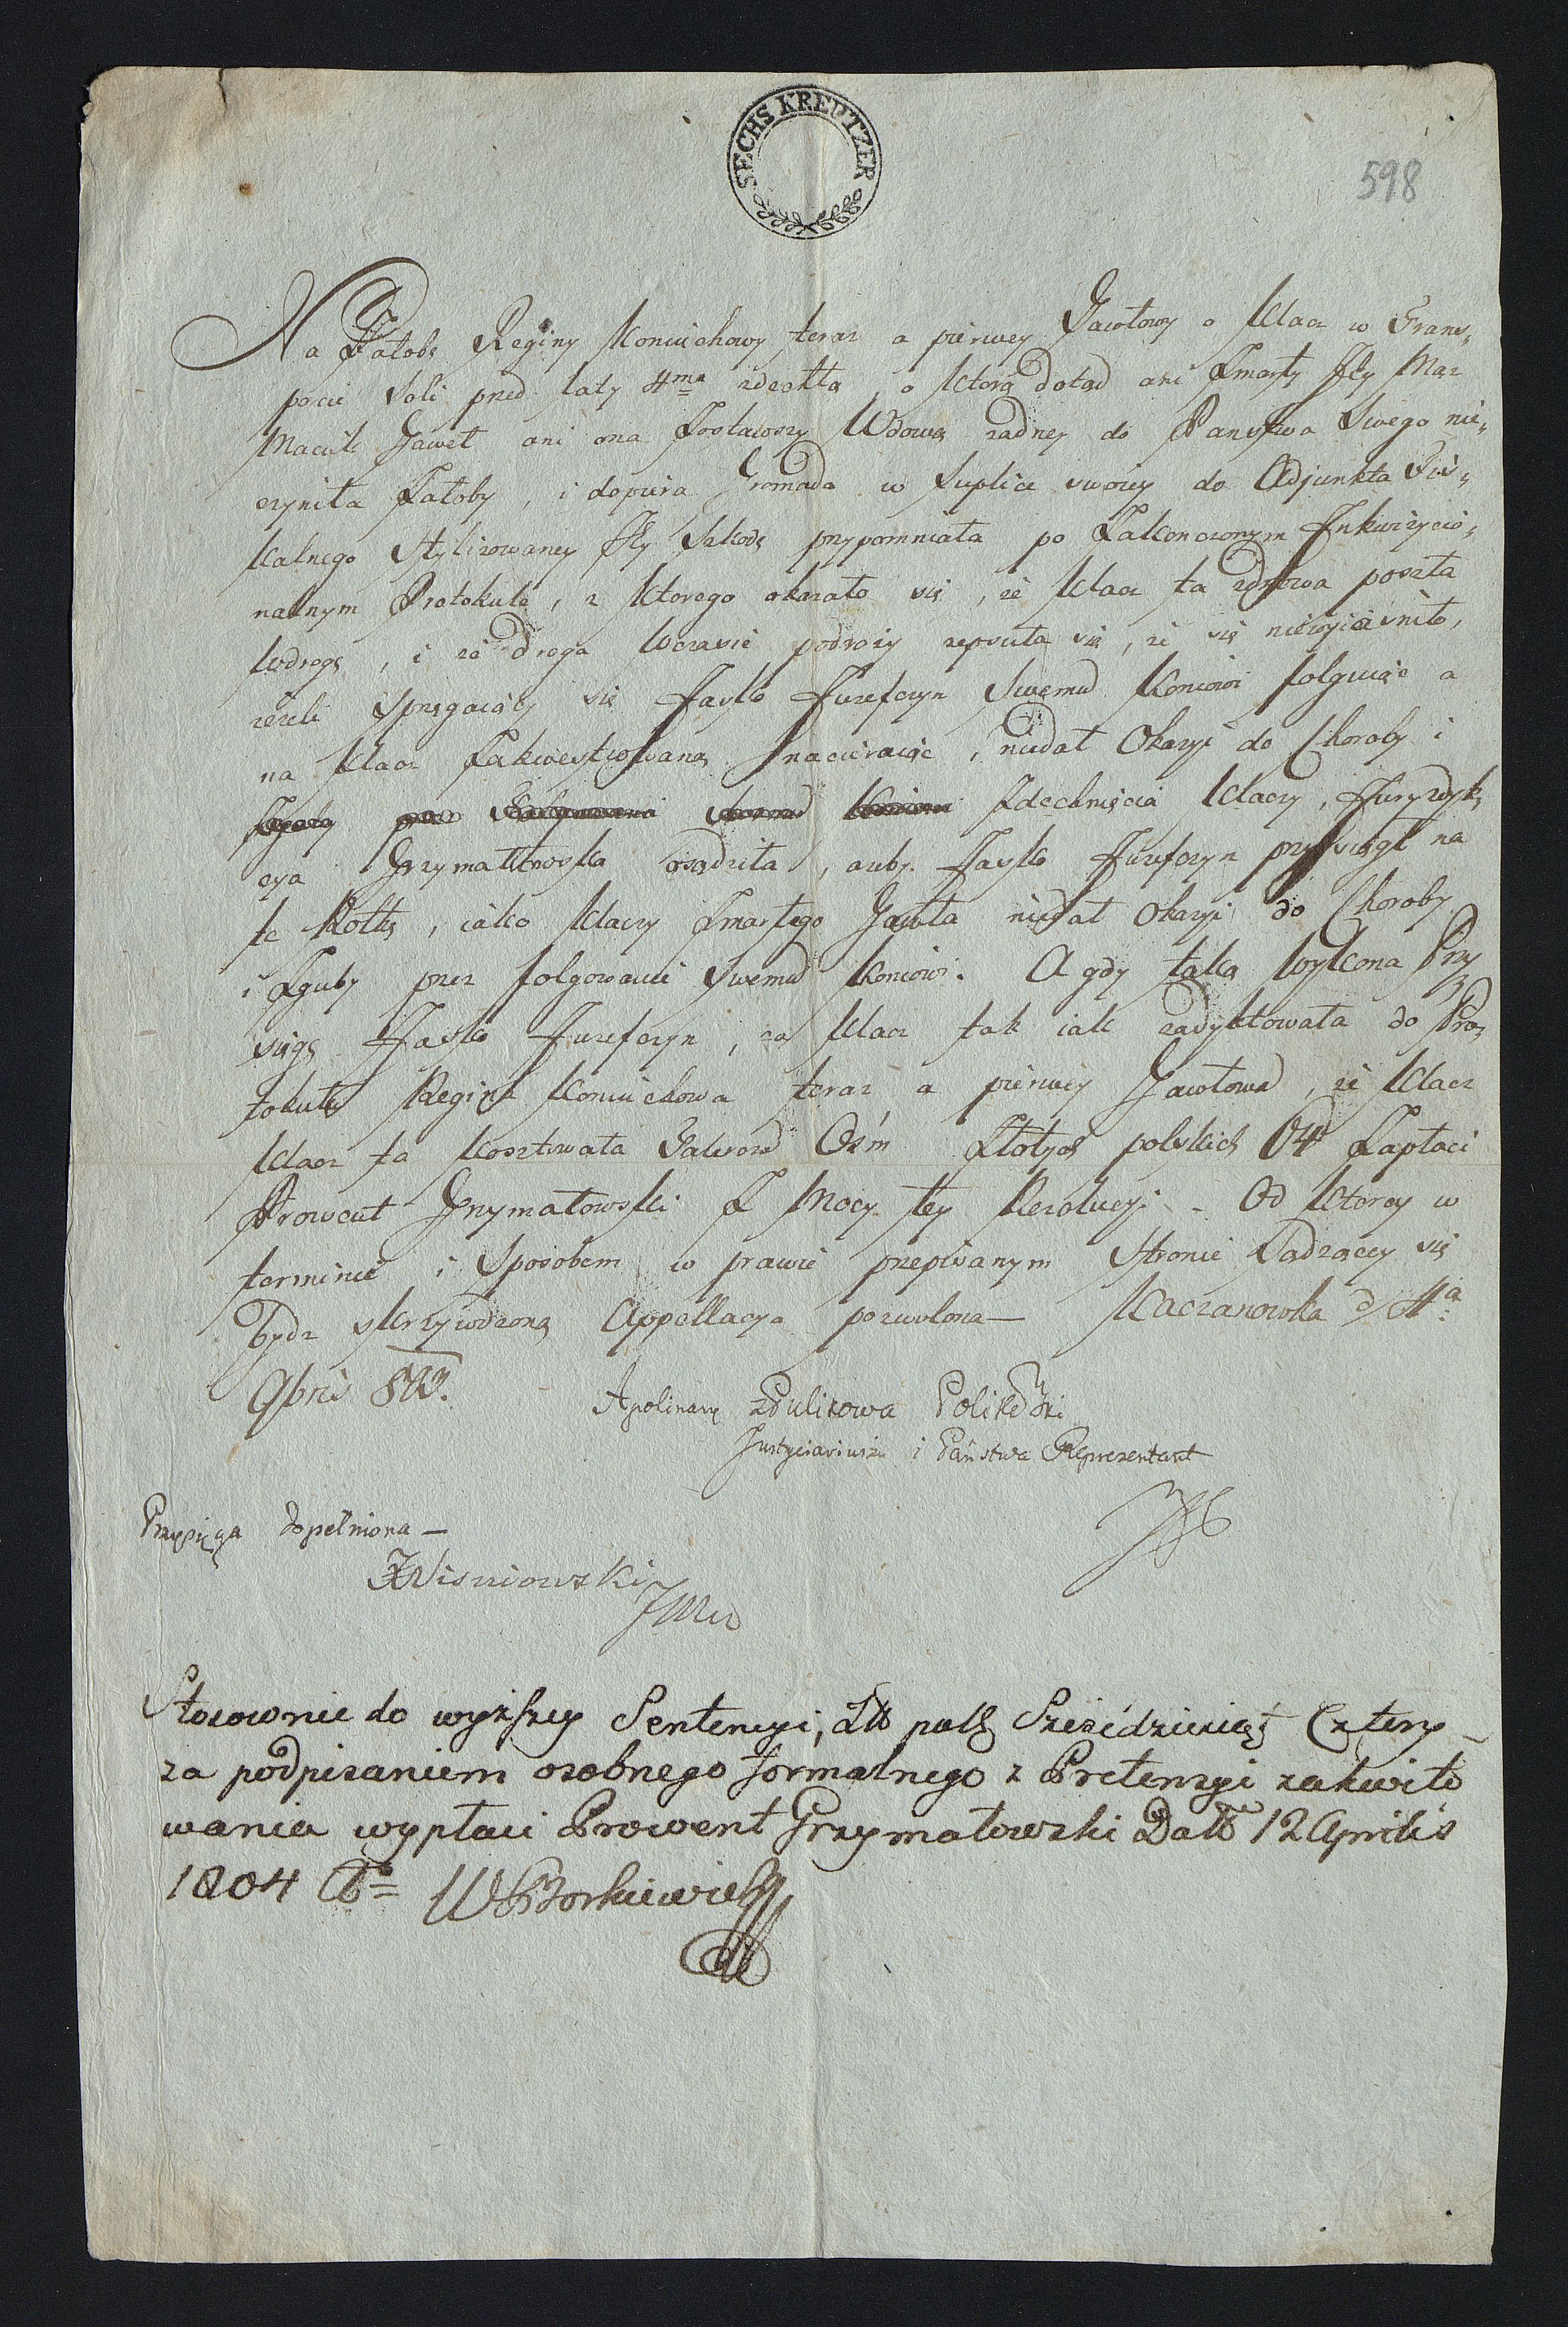 SECHS KREUTZER
598
Na Załobę Reginy Koniuchowy teraz a pierwey Jawłowy o Klacz w Trans„
porcie Soli przed laty 4ma zdechłą, o ktorą dotąd ani Zmarły Jey Mąz
Maciek Jaweł ani ona Zostawszy Wdową zadney do Panstwa Swego nie„
czyniła Załoby, i dopiera Gromada w Suplice swoiey do Adjunkta Fis„
kalnego Stylizowaney Jey Szkodę przypomniała po Zakonczonym Inkwizycio„
nalnym Protokule, z ktorego okazało się, że Klacz ta zdrowa poszła
w drogę, i ze droga w czasie podrozy zepsuła się, ze się niewyiasniło,
iezeli Sprzęgaiący się Jaśko Juzefczyn Swemu Koniowi folguiąc a
na Klacz Zakwestiowaną nacieraiąc, niedał Okazyi do Choroby i
Zdechnięcia Klaczy, Juryzdyk„
cya Grzymałowska osądziła, azeby Jaśko Juzefczyn przysiągł na
te Rottę, iako Klaczy Zmarłego Jawła niedał Okazyi do Choroby
i Zguby przez folgowanie Swemu Koniowi. A gdy taką wykona Przy„
sięgę Jaśko Juzefczyn, za Klacz tak iak zadyktowała do Pro„
tokułu Regina Koniuchowa teraz a pierwey Jawłowa, ze Klacz
Klacz ta kosztowała Talerow Ośm Złotych polskich 64 Zapłaci
Prowent Grzymałowski Z Mocy tey Rezolucyi. – Od ktorey w
terminie i Sposobem w prawie przepisanym Stronie Sądzącey się
bydz skrzywdzoną Appellacya pozwolona — Kaczanowka d. 4a
9bris 803.
Apolinary z Pulikowa Polikowski
Justycyariusz i Państwa Reprezentant
Przysięga dopełniona —
Wisniowski
Stosownie do wyższey Sentencyi, Złt pols Sześćdziesiąt Cztery
za podpisaniem osobnego formalnego z Pretensyi zakwito
wania wypłaci Prowent Grzymałowski Datt 12 Aprilis
1804 Ao W Borkiewicz